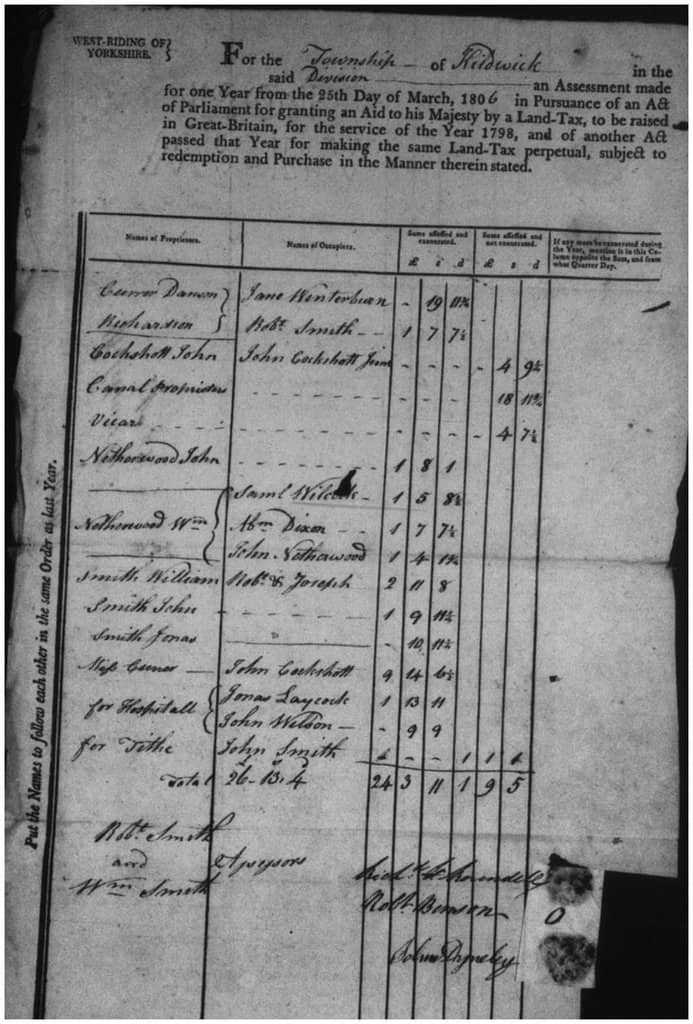 WEST-RIDING OF
YORKSHIRE.
For the Township of Kildwick in the
said Division an Assessment made
for one Year from the 25th Day of March, 1806 in Pursuance of an Act
of Parliament for granting an Aid to his Majesty by a Land-Tax, to be raised
in Great-Britain, for the service of the Year 1798, and of another Act
passed that Year for making the same Land-Tax perpetual, subject to
redemption and Purchase in the Manner therein stated.
Names of Proprietors. Names of Occupiers. Sums assessed and exonerated. £ s d Sums assessed and not exonerated. £ s d If any more be exonerated during the Year, mention it in this Column opposite the Sum, and from what Quarter Day.
Currer Dawson } Jane Winterburn - 19 11¾
Richardson } Robt Smith - - 1 7 7½
Cockshott John John Cockshott Junr - - - - 4 9½
Canal Proprietors - - - - 18 11¾
Vicar - - - - 4 7½
Netherwood John - - - - 1 8 1
{ Saml Wilcock - 1 5 8½
Netherwood Wm { Abm Dixon - - 1 7 7½
{ John Netherwood 1 4 1¾
Smith William Robt & Joseph 2 11 8
Smith John - - - - 1 9 11½
Smith Jonas 10 11½
Miss Currer John Cockshott 9 14 6½
for Hospitall { Jonas Laycock 1 13 11
{ John Wilson - - 9 9
for Tithe John Smith - - - 1 1 1
Total 26 - 13 - 4 24 3 11 1 9 5
Robt Smith
and Assessors
Wm Smith
Robt Benson
Put the Names to follow each other in the same Order as last Year.